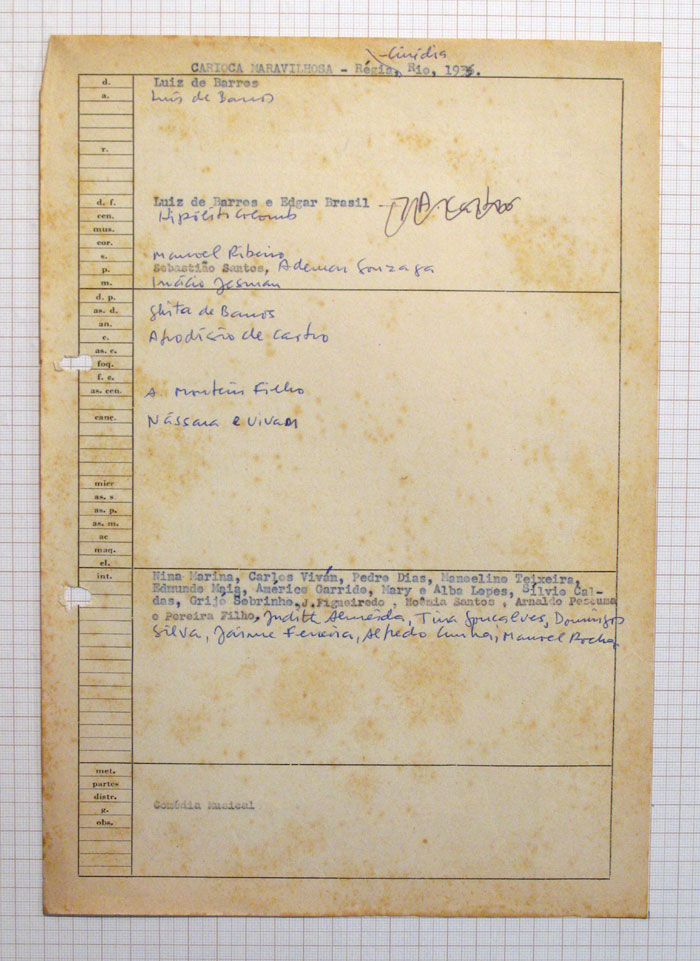 Cinédia
CARIOCA MARAVILHOSA - Régia, Rio, 1936.
d. Luiz de Barros
a. Luis de Barros
r.
d. f. Luiz de Barros e Edgar Brasil A. Castro
cen. Hipólito Colomb
mus.
cor.
s. Manoel Ribeiro
p. Sebastião Santos, Ademar Gonzaga
m. Inácio
d. p.
as. d. Ghita de Barros
an.
c. Afrodísio de Castro
as. c.
foq.
f. c.
as. cen. A. Monteiro Filho
canc. Nássara e Vivan
mirr
as. s
as. p.
as. m.
ac
maq.
el.
int. Nina Marina, Carlos Viván, Pedro Dias, Manoelino Teixeira,
Edmundo Maia, Americo Garrido, Mary e Alba Lopes, Silvio Cal-
das, Grijó Sobrinho, J.Figueiredo , Noêmia Santos , Arnaldo Pescuma
e Pereira Filho, Judith Almeida, Tina Gonçalves, Domingos
Silva, Jaime Ferreira, Alfredo Cunha, Manoel Rocha
met.
partes
distr.
g. Comédia Musical
obs.